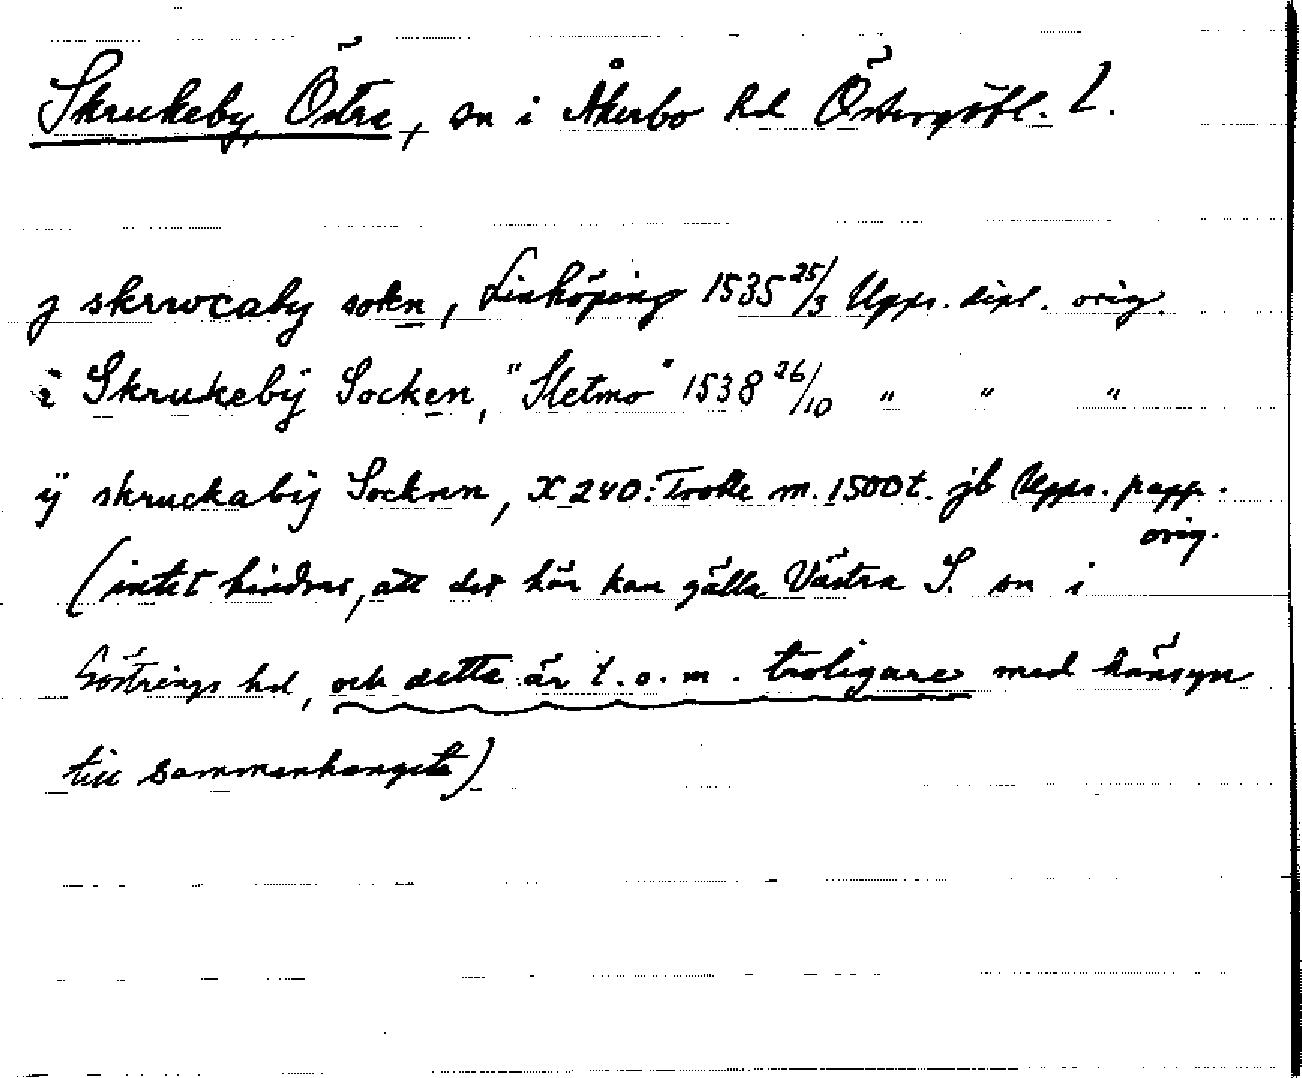 Skrukeby, Östra, sn i Åkerbo hd Östergötl. l.
j skrwcaby sokn, Linköping 1535 25/3 Upps. dipl. orig.
i Skrukebÿ Socken, "Sletmo" 1538 26/10 " " "
ÿ skruckabÿ Socknn, X 240: Trolle m. 1500 t. jb Upps. papp. orig.
(intet hindrar, att det här kan gälla Västra S. sn i
Göstrings hd, och detta är t.o.m. troligare med hänsyn
till sammanhanget)